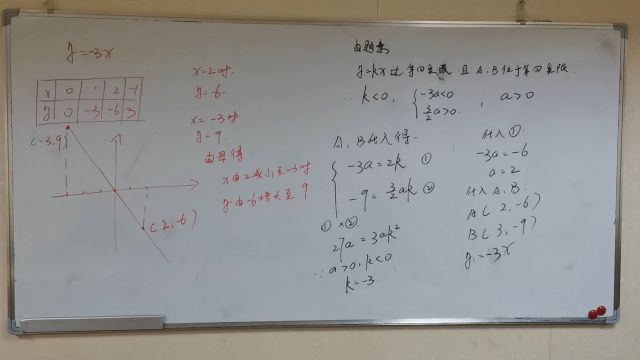 y=-3x
x 0 1 2 -1
y 0 -3 -6 3
(-3,9)
(2,-6)
x=2时,
y=-6.
x=-3时
y=9.
由图得.
x由2减小至-3时
y由-6增大至9
由题意
y=kx过第四象限 且A、B位于第四象限.
∴k<0, { -3a<0 , a>0
3/2a>0.
A、B代入得.
-3a=2k ①
-9=3/2ak ②
①×②
27a=3ak²
∵a>0,k<0
k=-3.
代入①.
-3a=-6
a=2.
代入A.B.
A(2,-6)
B(3,-9)
y=-3x